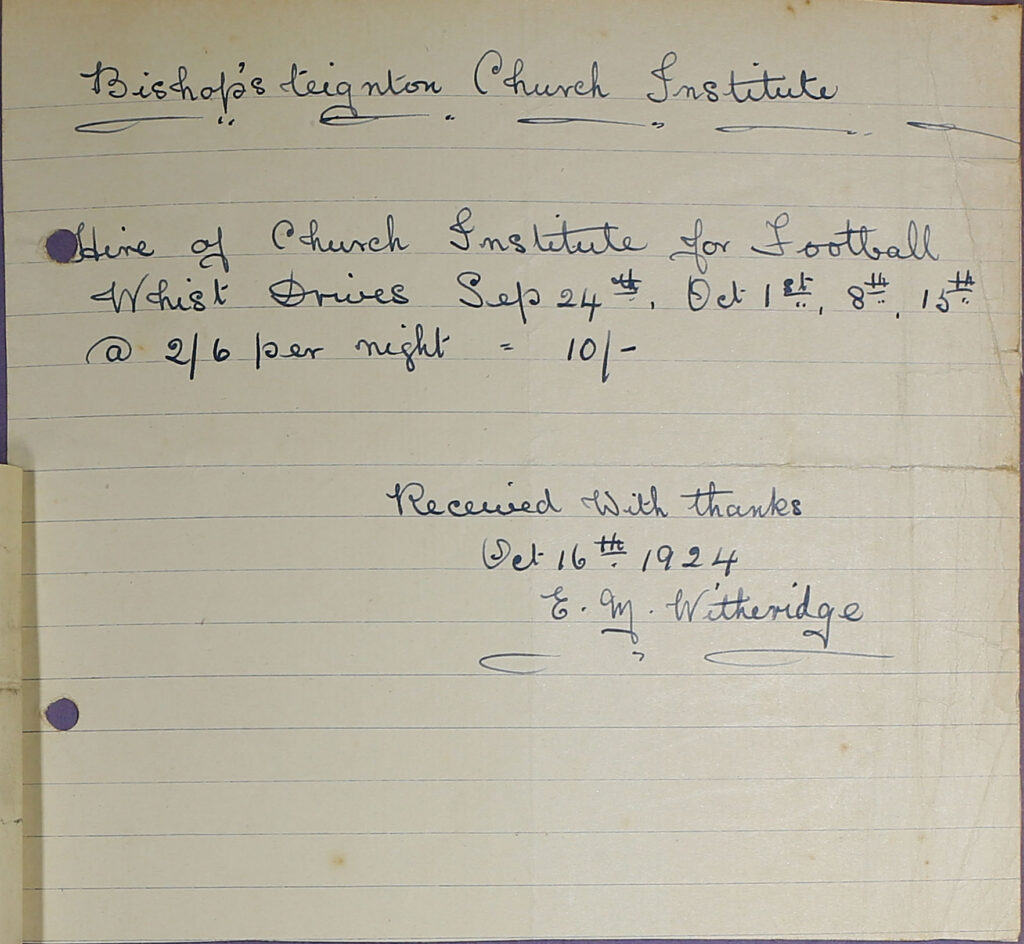 Bishop's teignton Church Institute
Hire of Church Institute for Football
Whist Drives Sep 24th, Oct 1st, 8th, 15th
@ 2/6 per night = 10/-
Received With thanks
Oct 16th 1924
E. M. Witheridge